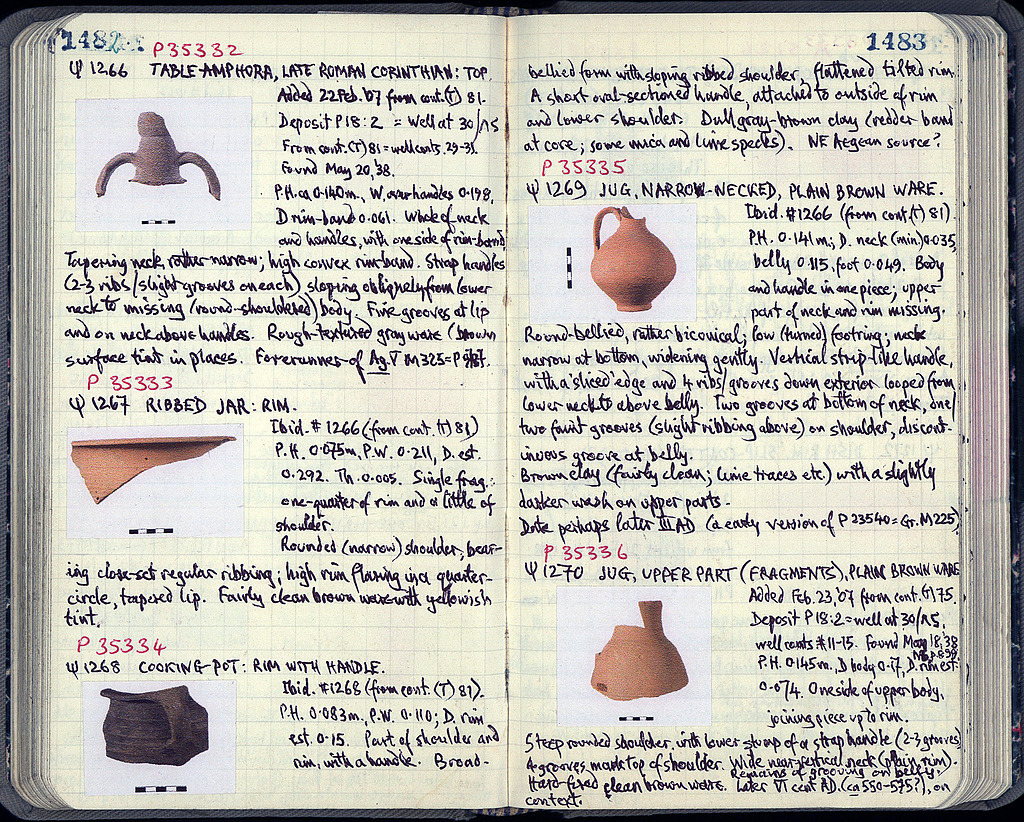 1482
P35332
Ψ 1266 TABLE-AMPHORA, LATE ROMAN CORINTHIAN: TOP.
Added 22 Feb. '07 from cont. (T) 81.
Deposit P18:2 = well at 30/ΛΣ
From cont. (T) 81 = well conts. 29-31.
Found May 20, '38.
P.H. ca 0.140m., W. over handles 0.198,
D rim-band 0.061. Whole of neck
and handles, with one side of rim-band.
Tapering neck, rather narrow; high convex rim band. Strap handles
(2-3 ribs/slight grooves on each) sloping obliquely from lower
neck to missing (round-shouldered) body. Fine grooves at lip
and on neck above handles. Rough-textured gray ware (brown
surface tint in places. Forerunner of Ag. V M325 = P
P 35333
Ψ 1267 RIBBED JAR: RIM.
Ibid. # 1266 (from cont. (T) 81)
P.H. 0.075m, P.W. 0.211, D. est.
0.292. Th. 0.005. Single frag.:
one-quarter of rim and a little of
shoulder.
Rounded (narrow) shoulder, bear-
ing close-set regular ribbing; high rim flaring in a quarter-
circle, tapered lip. Fairly clean brown ware with yellowish
tint.
P 35334
Ψ 1268 COOKING-POT: RIM WITH HANDLE.
Ibid. #1268 (from cont. (T) 81).
P.H. 0.083m., P.W. 0.110; D. rim
est. 0.15. Part of shoulder and
rim, with a handle. Broad-
1483
bellied form with sloping ribbed shoulder, flattened tilted rim.
A short oval-sectioned handle, attached to outside of rim
and lower shoulder. Dull gray-brown clay (redder band
at core; some mica and lime specks). NE Aegean source?
P 35335
Ψ 1269 JUG, NARROW-NECKED, PLAIN BROWN WARE.
Ibid. #1266 (from cont. (T) 81).
P.H. 0.141 m; D. neck (min.) 0.035,
belly 0.115, foot 0.049. Body
and handle in one piece; upper
part of neck and rim missing.
Round-bellied, rather biconical; low (turned) footring; neck
narrow at bottom, widening gently. Vertical strip-like handle,
with a 'sliced' edge and 4 ribs/grooves down exterior looped from
lower neck to above belly. Two grooves at bottom of neck, one/
two faint grooves (slight ribbing above) on shoulder, discont-
inuous groove at belly.
Brown clay (fairly clean; lime traces etc.) with a slightly
darker wash on upper parts.
Date perhaps later III AD (a early version of P 23540 = Gr. M225)
P 35336
Ψ 1270 JUG, UPPER PART (FRAGMENTS), PLAIN BROWN WARE
Added Feb. 23, '07 from cont. (T) 75.
Deposit P18:2 = well at 30/ΛΣ,
well conts #11-15. Found May 18, 38
P.H. 0.145m., D body 0.17, D. rim est.
0.074. One side of upper body,
joining piece up to rim.
Steep rounded shoulder, with lower stump of a strap handle (2-3 grooves)
4 grooves mark top of shoulder. Wide near-vertical neck (plain rim).
Remains of grooving on belly.
Hard-fired clean brown ware. Later VI cent AD. (ca 550-575?), on
context.